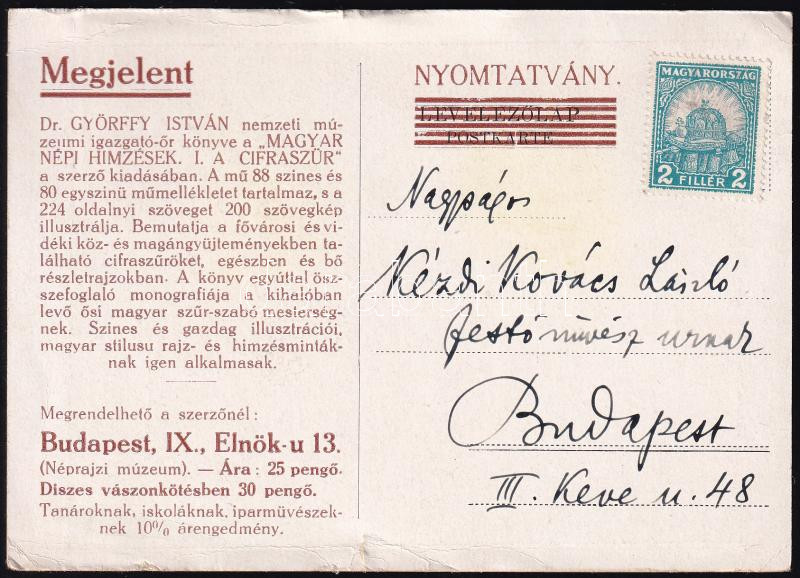 Megjelent
Dr. GYÖRFFY ISTVÁN nemzeti mú-
zeumi igazgató-őr könyve a „MAGYAR
NÉPI HIMZÉSEK. I. A CIFRASZŰR“
a szerző kiadásában. A mű 88 szines és
80 egyszinü műmellékletet tartalmaz, s a
224 oldalnyi szöveget 200 szövegkép
illusztrálja. Bemutatja a fővárosi és vi-
déki köz- és magángyüjteményekben ta-
lálható cifraszűröket, egészben és bő
részletrajzokban. A könyv egyúttal ösz-
szefoglaló monografiája a kihalóban
levő ősi magyar szűr-szabó mesterség-
nek. Szines és gazdag illusztrációi,
magyar stilusu rajz- és himzésminták-
nak igen alkalmasak.
Megrendelhető a szerzőnél:
Budapest, IX., Elnök-u 13.
(Néprajzi múzeum). — Ára: 25 pengő.
Diszes vászonkötésben 30 pengő.
Tanároknak, iskoláknak, iparmüvészek-
nek 10% árengedmény.
NYOMTATVÁNY.
LEVELEZŐLAP
POSTKARTE
MAGYARORSZÁG
2 FILLÉR 2
Nagyságos
Kézdi Kovács László
festőművész urnak
Budapest
III. Keve u. 48